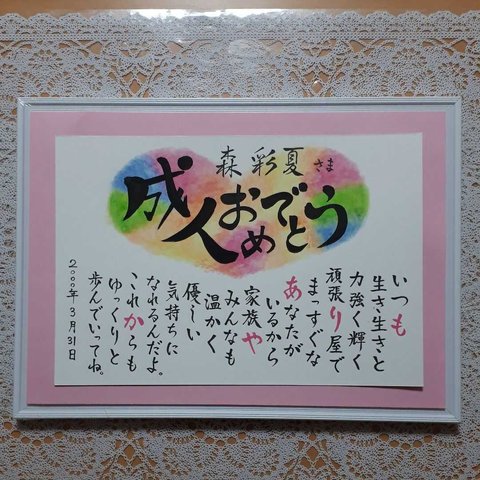 森 彩夏 さま
成人おめでとう
いつも
生き生きと
力強く輝く
頑張り屋で
まっすぐな
あなたが
いるから
家族や
みんなも
温かく
優しい
気持ちに
なれるんだよ。
これからも
ゆっくりと
歩んでいってね。
2000年3月31日